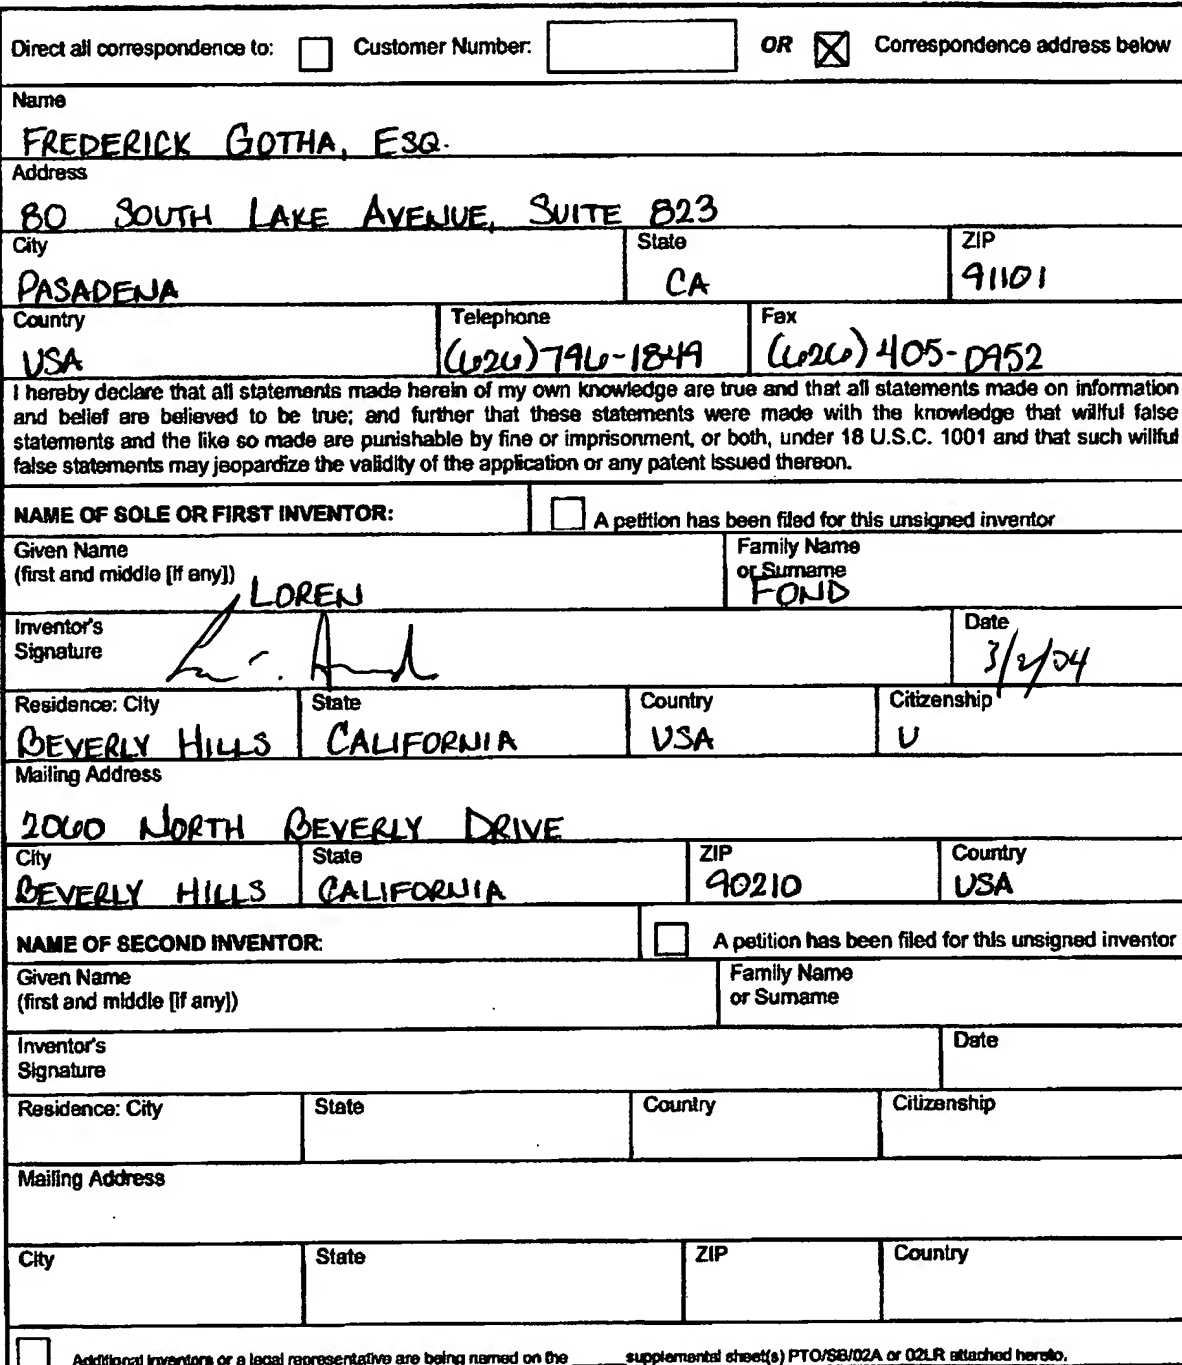 Direct all correspondence to: Customer Number: OR Correspondence address below
Name
FREDERICK GOTHA, ESQ.
Address
80 SOUTH LAKE AVENUE, SUITE 823
City State ZIP
PASADENA CA 91101
Country Telephone Fax
USA (626) 796-1849 (626) 405-0952
I hereby declare that all statements made herein of my own knowledge are true and that all statements made on information
and belief are believed to be true; and further that these statements were made with the knowledge that willful false
statements and the like so made are punishable by fine or imprisonment, or both, under 18 U.S.C. 1001 and that such willful
false statements may jeopardize the validity of the application or any patent issued thereon.
NAME OF SOLE OR FIRST INVENTOR: A petition has been filed for this unsigned inventor
Given Name Family Name
(first and middle [if any]) or Surname
LOREN FOND
Inventor's Date
Signature 3/2/04
Residence: City State Country Citizenship
BEVERLY HILLS CALIFORNIA USA U
Mailing Address
2060 NORTH BEVERLY DRIVE
City State ZIP Country
BEVERLY HILLS CALIFORNIA 90210 USA
NAME OF SECOND INVENTOR: A petition has been filed for this unsigned inventor
Given Name Family Name
(first and middle [if any]) or Surname
Inventor's Date
Signature
Residence: City State Country Citizenship
Mailing Address
City State ZIP Country
Additional inventors or a legal representative are being named on the ____ supplemental sheet(s) PTO/SB/02A or 02LR attached hereto.